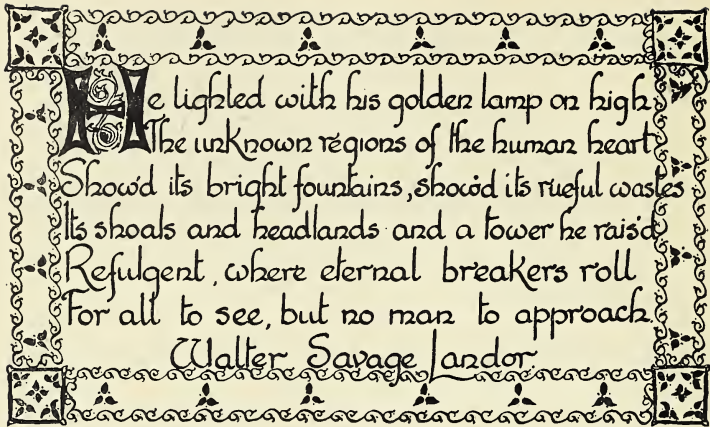 He lighted with his golden lamp on high
The unknown regions of the human heart
Show'd its bright fountains, show'd its rueful wastes
Its shoals and headlands and a tower he rais'd
Refulgent, where eternal breakers roll
For all to see, but no man to approach.
Walter Savage Landor.